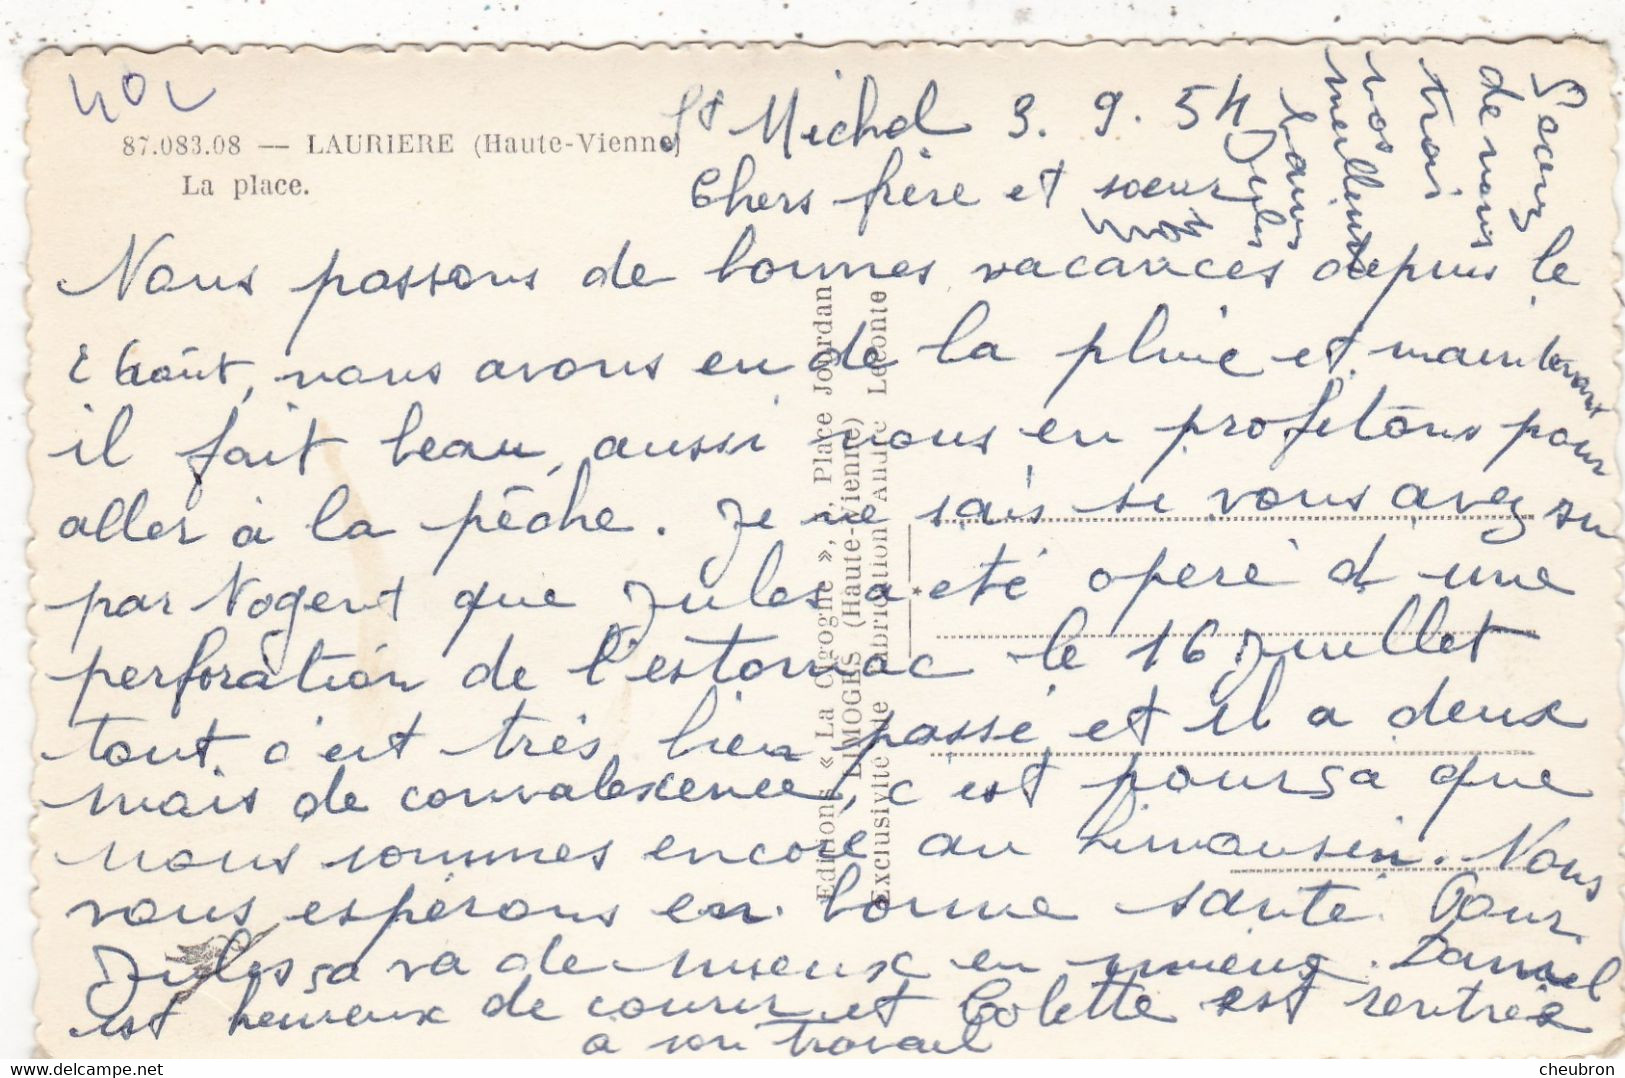 402
87.083.08 — LAURIERE (Haute-Vienne)
La place.
St Michel 3. 9. 54
Chers frère et soeur
Nous passons de bonnes vacances depuis le
2 Août, nous avons eu de la pluie et maintenant
il fait beau, aussi nous en profitons pour
aller à la pêche. Je ne sais si vous avez su
par Nogent que Jules a eté operé d une
perforation de l'estomac le 16 Juillet
tout c'est très bien passé et il a deux
mois de convalescence, c'est pour sa que
nous sommes encore au limousin. Nous
vous espérons en bonne santé. Pour
Jules sa va de mieux en mieux. Daniel
est heureux de courir et Colette est rentrée
a son travail
Recevez
de nous
trois
nos
meilleurs
baisers
Jules
Editions « La Cigogne », , Place Jourdan
LIMOGES (Haute-Vienne)
Exclusivité de Fabrication André Leconte
cheubron